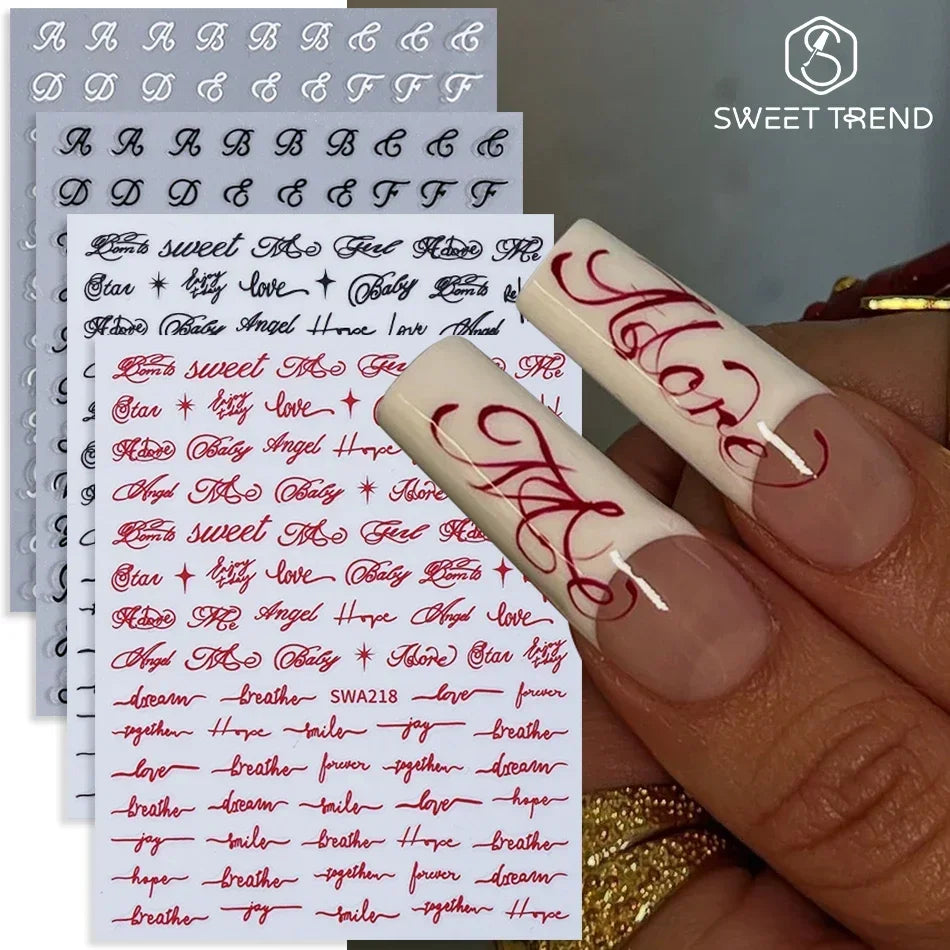 A A A B B B C C C
D D D E E E F F F
SWEET TREND
A A A B B B C C C
D D D E E E F F F
Born to sweet Me Girl Adore Me
Star Enjoy today love Baby Born to
Adore Baby Angel Hope love Angel
Born to sweet Me Me
Star Enjoy today love
Adore Baby Angel Hope
Angel Me Baby Adore
Born to sweet Me Girl
Star Enjoy today love Baby Born to
Adore Me Angel Hope Angel love
Angel Me Baby Adore Star Enjoy today
dream breathe SWA218 love forever
together Hope smile jay breathe
love breathe forever together dream
breathe dream smile love hope
jay smile breathe Hope breathe
hope breathe together forever dream
breathe jay smile together Hope
Adore
Me